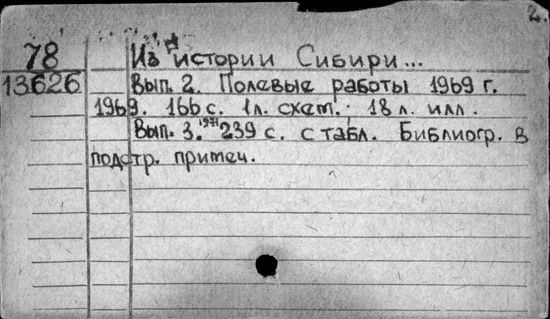 2.
78 Из истории Сибири...
13626 Вып. 2. Полевые работы 1969 г.
1969. 166 с. 1л. схем.; 18 л. илл.
Вып. 3. 1971 239 с. с табл. Библиогр. в
подстр. примеч.